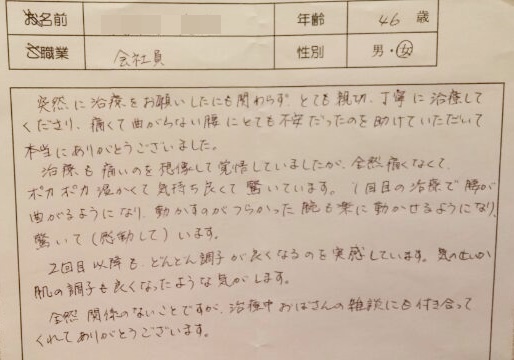 お名前 年齢 46 歳
ご職業 会社員 性別 男・女
突然に治療をお願いしたにも関わらず、とても親切、丁寧に治療して
くださり、痛くて曲がらない腰にとても不安だったのを助けていただいて
本当にありがとうございました。
治療も痛いのを想像して覚悟していましたが、全然痛くなくて、
ポカポカ温かくて気持ち良くて驚いています。1回目の治療で腰が
曲がるようになり、動かすのがつらかった腕も楽に動かせるようになり、
驚いて(感動して)います。
2回目以降も、どんどん調子が良くなるのを実感しています。気のせいか
肌の調子も良くなったような気がします。
全然関係のないことですが、治療中おばさんの雑談にも付き合って
くれてありがとうございます。